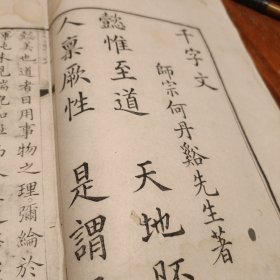 千字文
師宗何丹谿先生著
懿惟至道 天地胚
人稟厥性 是謂
懿美也道者日用事物之理彌綸於